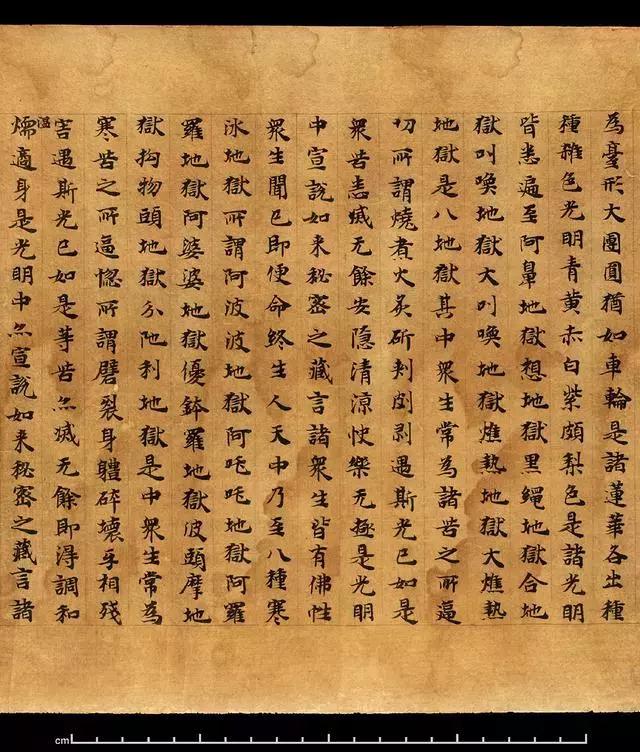 為臺形大團圓猶如車輪是諸蓮華各出種
種雜色光明青黃赤白紫頗梨色是諸光明
皆悉遍至阿鼻地獄想地獄黑繩地獄合地
獄叫喚地獄大叫喚地獄燋熱地獄大燋熱
地獄是八地獄其中衆生常為諸苦之所逼
切所謂燒煮火炙斫刾剝遇斯光已如是
衆苦悉滅无餘安隱清涼快樂无極是光明
中宣說如来秘密之藏言諸衆生皆有佛性
衆生聞已即便命終生人天中乃至八種寒
氷地獄所謂阿波波地獄阿吒吒地獄阿羅
羅地獄阿婆婆地獄優鉢羅地獄波頭摩地
獄拘物頭地獄分陁利地獄是中衆生常為
寒苦之所逼惱所謂劈裂身體碎壞互相殘
害遇斯光已如是等苦亦滅无餘即得調和
温燸適身是光明中亦宣說如来秘密之藏言諸
cm